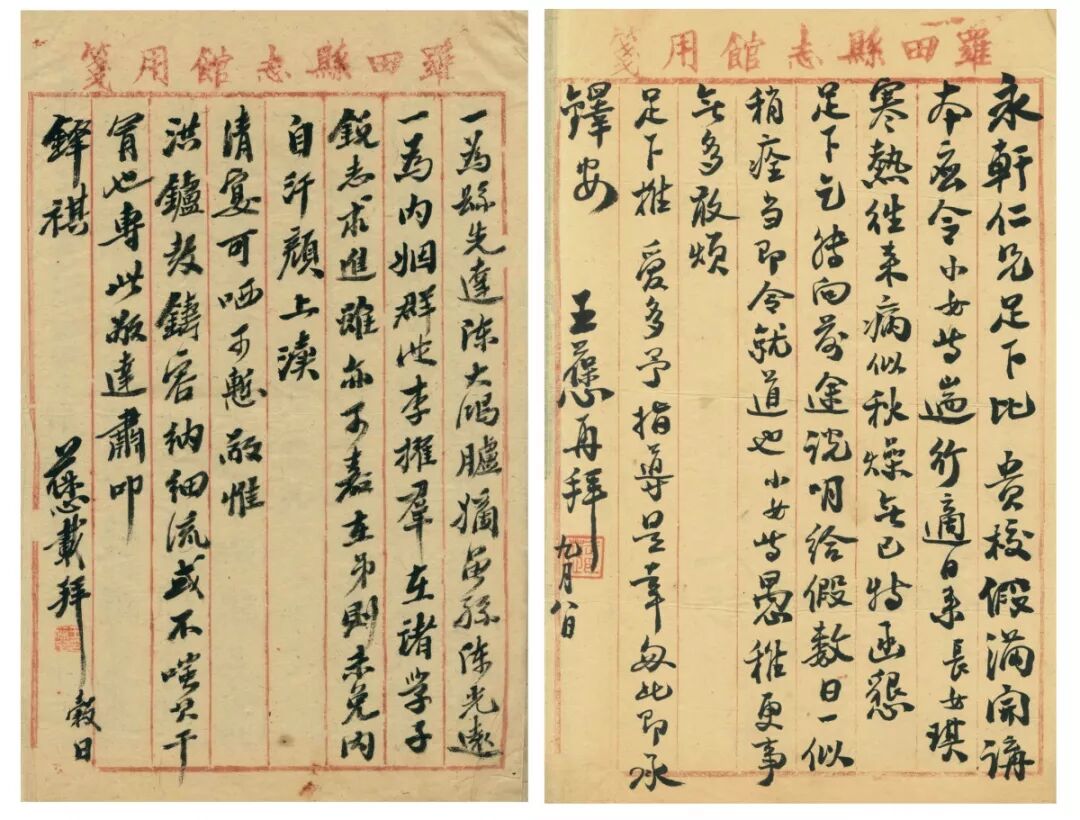 羅田縣志館用箋
永軒仁兄足下比 貴校假滿開講
本應令小女等遄行適日來長女琪
寒熱往来病似秋燥無已特函懇
足下乞转向前途说明给假數日一俟
稍痊当即令就道也小女等愚稚更事
無多敢煩
足下推 愛多予指導是幸匆此即承
鐸安 王葆心再拜 九月八日
羅田縣志館用箋
一為縣先達陳大鴻臚嫡孫陳光遠
一為內姻群從李擢羣在諸學子
銳志求進雖亦可嘉在弟則未免內
自汗顏上瀆
清宴可哂可慙敬惟
洪鑪鑄容納細流或不嗤其干
冒也專此敬達肅叩
鐸祺 葆心載拜 穀日